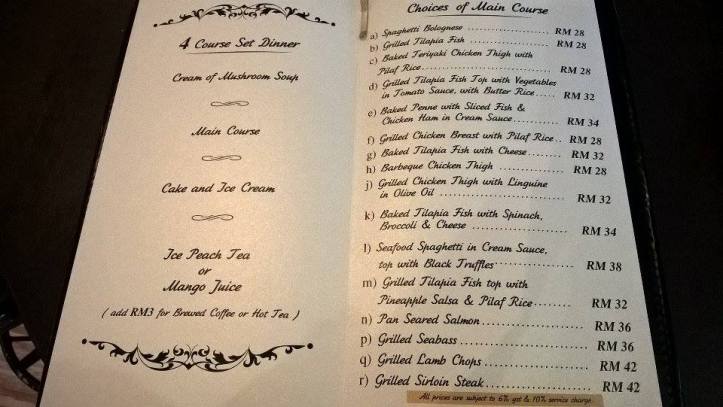 4 Course Set Dinner
Cream of Mushroom Soup
Main Course
Cake and Ice Cream
Ice Peach Tea
or
Mango Juice
( add RM3 for Brewed Coffee or Hot Tea )
Choices of Main Course
a) Spaghetti Bolognese ............ RM 28
b) Grilled Tilapia Fish ............ RM 28
c) Baked Teriyaki Chicken Thigh with
Pilaf Rice............ RM 28
d) Grilled Tilapia Fish Top with Vegetables
in Tomato Sauce, with Butter Rice..... RM 32
e) Baked Penne with Sliced Fish &
Chicken Ham in Cream Sauce......... RM 34
f) Grilled Chicken Breast with Pilaf Rice.. RM 28
g) Baked Tilapia Fish with Cheese........ RM 32
h) Barbeque Chicken Thigh ............ RM 28
j) Grilled Chicken Thigh with Linguine
in Olive Oil ............ RM 32
k) Baked Tilapia Fish with Spinach,
Broccoli & Cheese ............ RM 34
l) Seafood Spaghetti in Cream Sauce,
top with Black Truffles ............ RM 38
m) Grilled Tilapia Fish top with
Pineapple Salsa & Pilaf Rice........ RM 32
n) Pan Seared Salmon............ RM 36
p) Grilled Seabass............ RM 36
q) Grilled Lamb Chops............ RM 42
r) Grilled Sirloin Steak............ RM 42
All prices are subject to 6% gst & 10% service charge